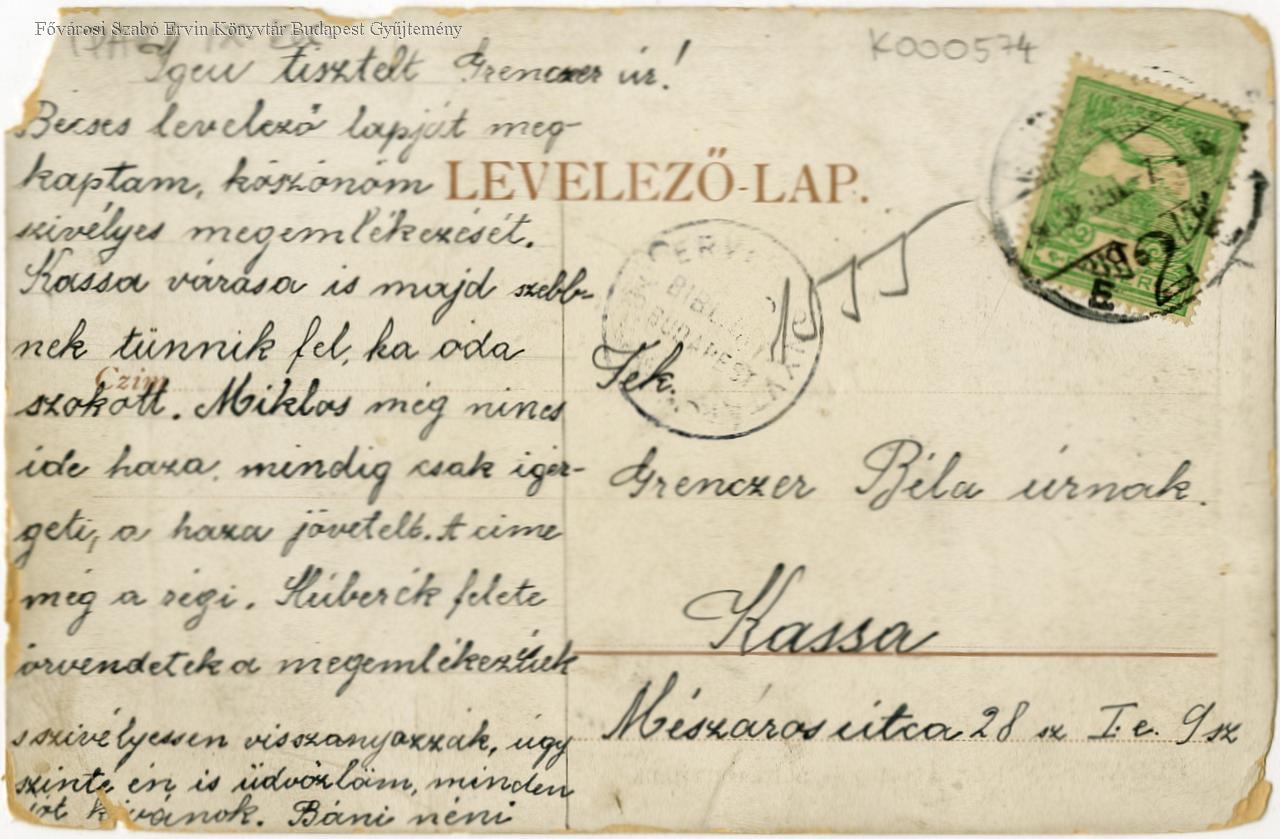 Fővárosi Szabó Ervin Könyvtár Budapest Gyűjtemény
K000574
Igen tisztelt Grenczer úr!
Becses levelező lapját meg-
kaptam, köszönöm
szivélyes megemlékezését.
Kassa várása is majd szebb-
nek tünnik fel, ha oda
szokott. Miklos még nincs
ide haza, mindig csak igér-
geti, a haza jövetelt. A cime
még a régi. Húberék felete
örvendetek a megemlékezésnek
s szivélyessen visszanyozzák, úgy
szinte én is üdvözlöm, minden
jót kivánok. Báni néni
LEVELEZŐ-LAP.
Czim
BUDAPEST
Tek.
Grenczer Béla úrnak.
Kassa
Mészáros útca 28 sz I. e. 9 sz